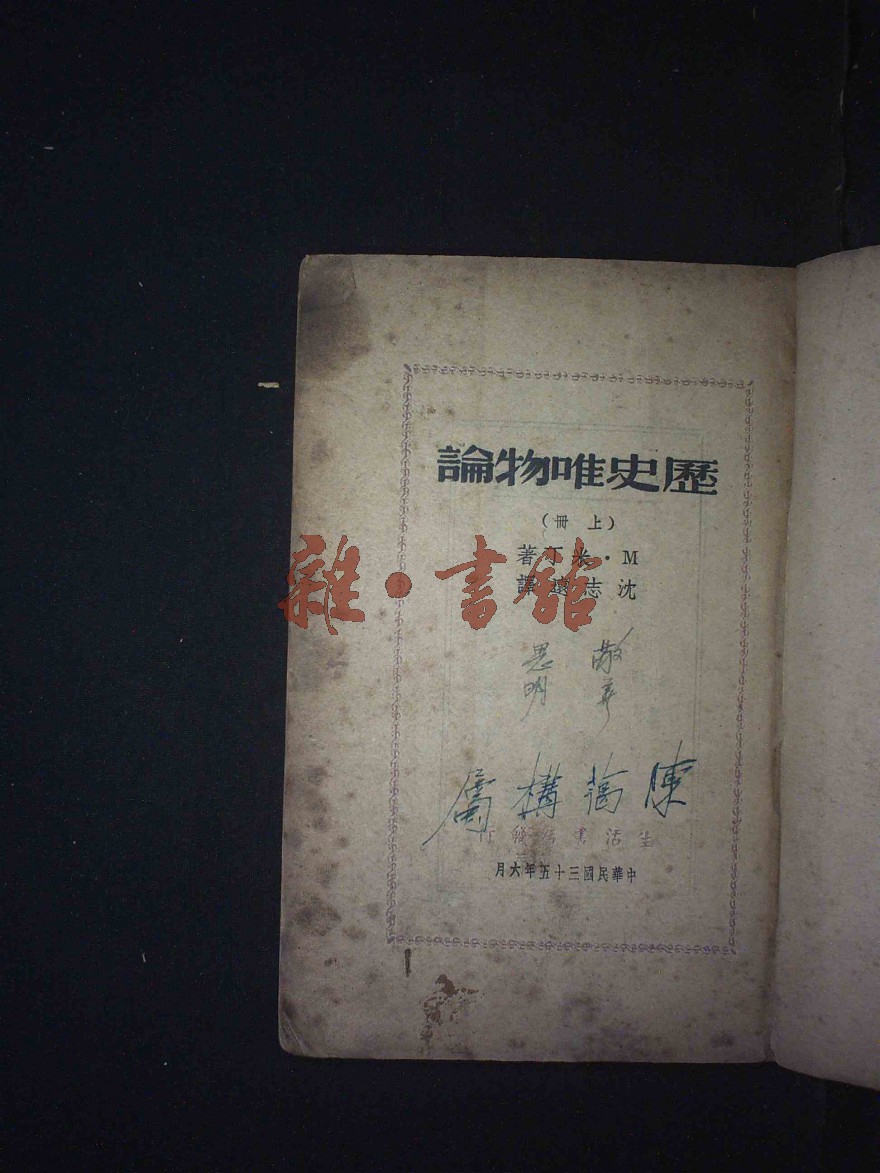 歷史唯物論
（上冊）
M·米丁著
沈志遠譯
雜·書館
思明
陳
生活書店發行
中華民國三十五年六月